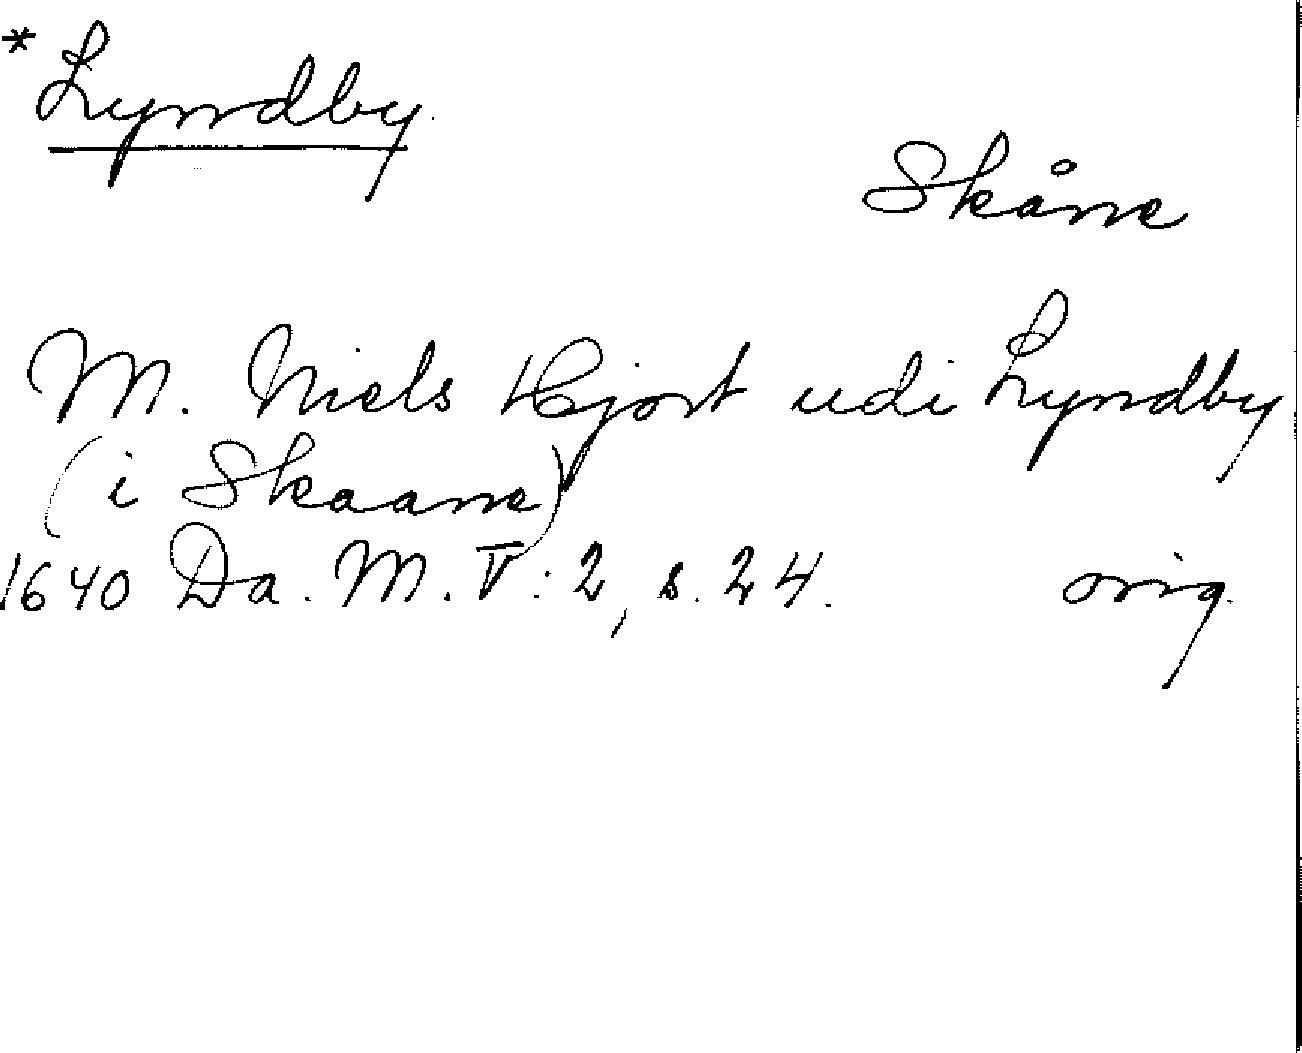 *Lyndby
Skåne
M. Niels Hjort udi Lyndby
(i Skaane)
1640 Da. M. V: 2, s. 24. orig.